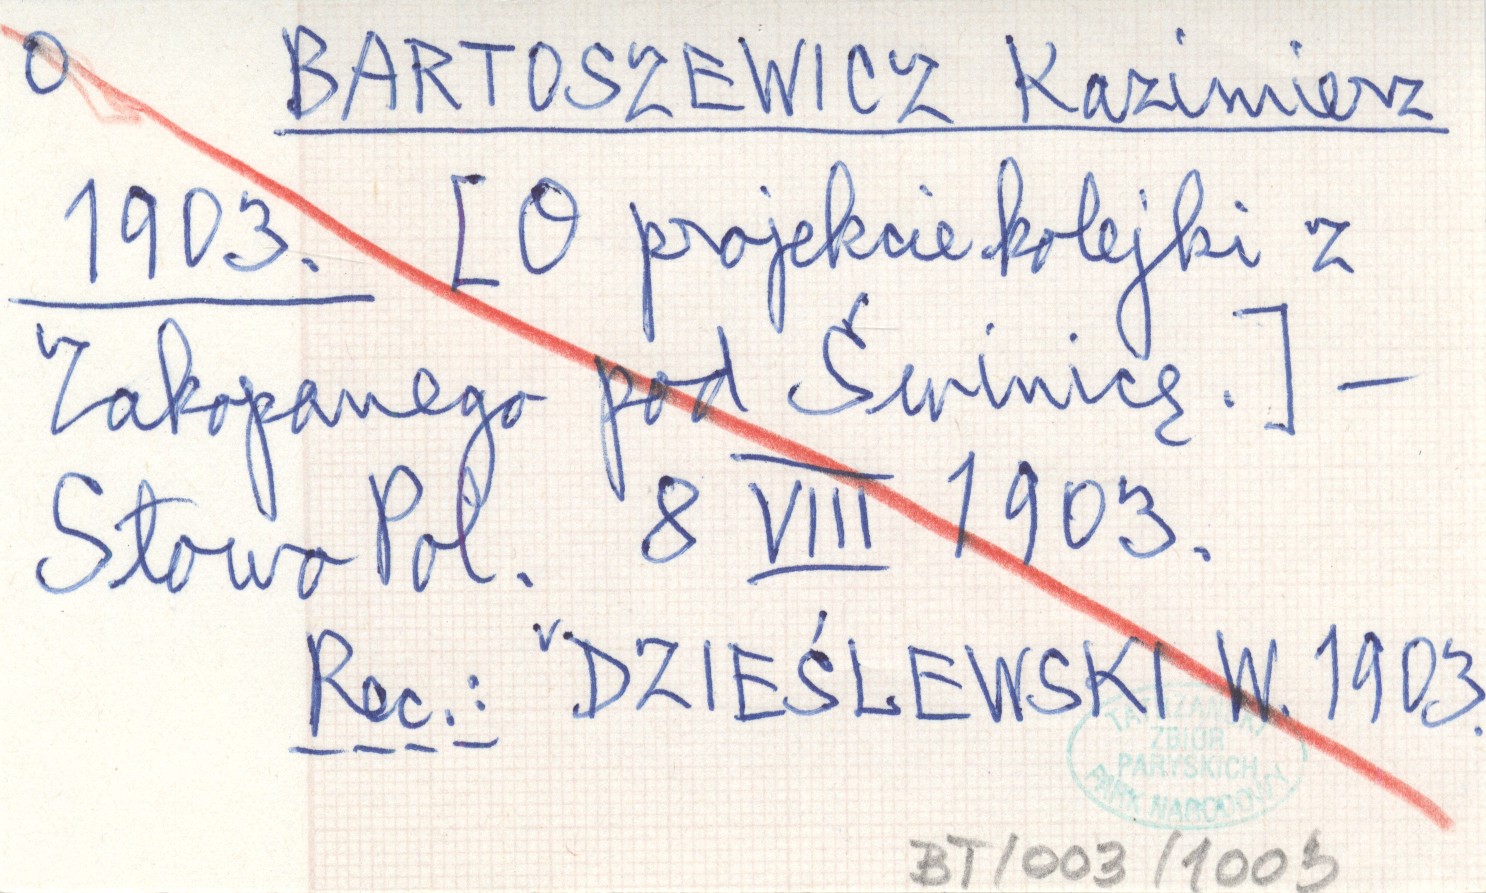 O BARTOSZEWICZ Kazimierz
1903. [O projekcie kolejki z
Zakopanego pod Świnicę.] —
Słowo Pol. 8 VIII 1903.
Rec.: DZIEŚLEWSKI W. 1903.
TATRZAŃSKI
ZBIÓR
PARYSKICH
PARK NARODOWY
BT/003/1003